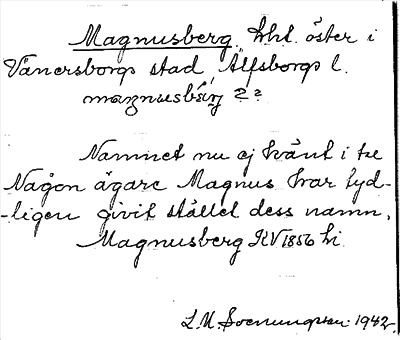 Magnusberg. lht. öster i
Vänersborgs stad, Älfsborgs l.
Namnet nu ej känt i tr
Någon ägare Magnus har tyd-
-ligen givit stället dess namn.
Magnusberg KV 1856 hi.
1942.